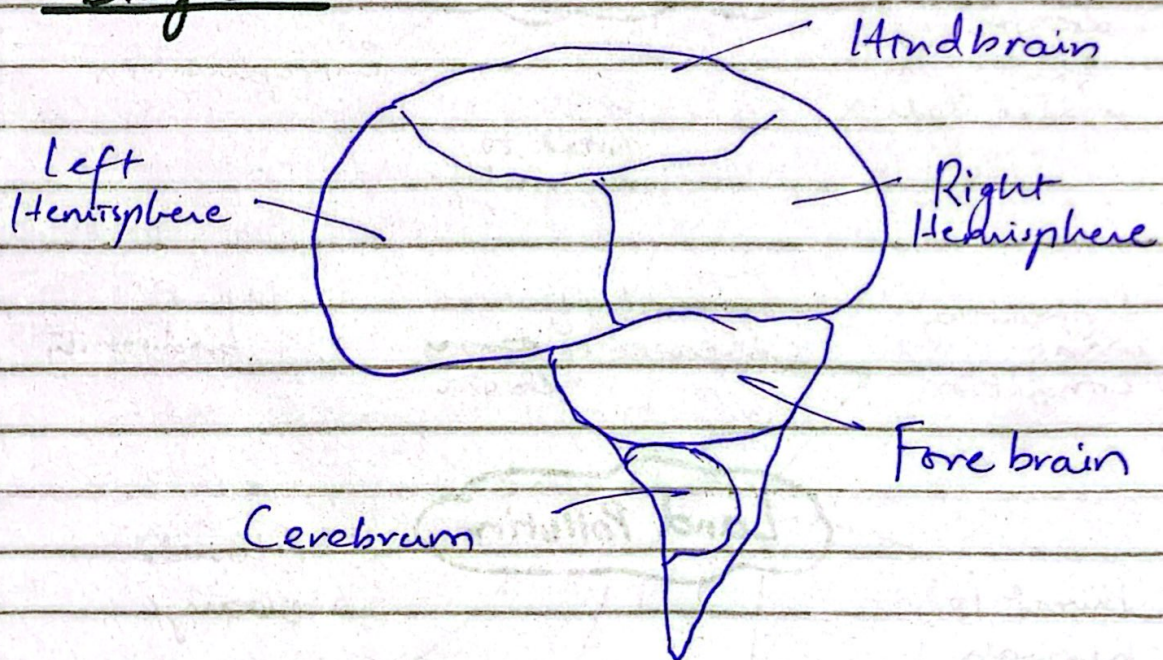 Hindbrain
Left
Hemisphere
Right
Hemisphere
Fore brain
Cerebrum